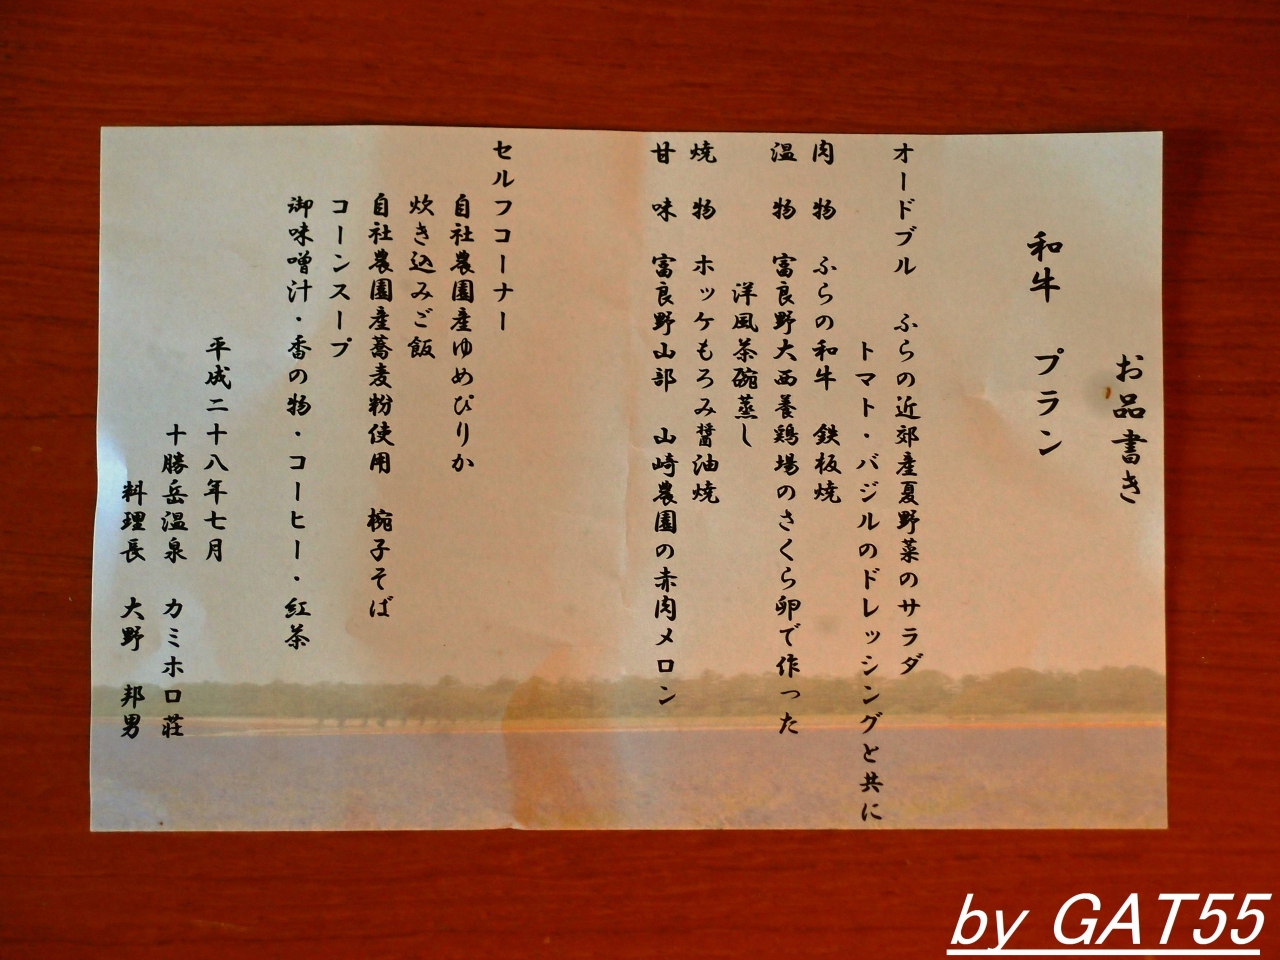 お品書き
和牛　プラン
オードブル　ふらの近郊産夏野菜のサラダ
トマト・バジルのドレッシングと共に
肉　物　ふらの和牛　鉄板焼
温　物　富良野大西養鶏場のさくら卵で作った
洋風茶碗蒸し
焼　物　ホッケもろみ醤油焼
甘　味　富良野山部　山崎農園の赤肉メロン
セルフコーナー
自社農園産ゆめぴりか
炊き込みご飯
自社農園産蕎麦粉使用　椀子そば
コーンスープ
御味噌汁・香の物・コーヒー・紅茶
平成二十八年七月
十勝岳温泉　カミホロ荘
料理長　大野　邦男
by GAT55